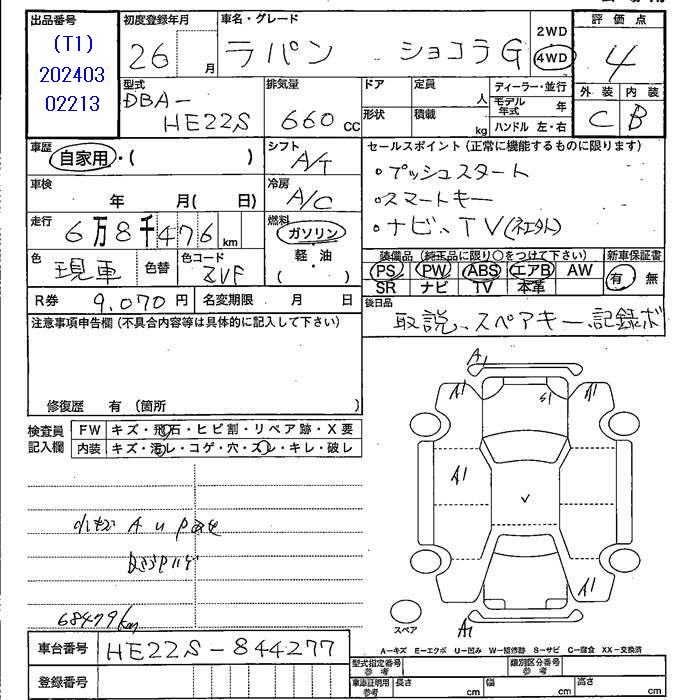 出品番号
(T1)
202403
02213
初度登録年月
26 月
車名・グレード
ラパン ショコラG
2WD
4WD
評価点
4
外装 内装
C B
型式
DBA-
HE22S
排気量
660 cc
ドア
形状
定員
人
積載
kg
ディーラー・並行
モデル年式 年
ハンドル 左・右
車歴
自家用・( )
シフト
A/T
セールスポイント(正常に機能するものに限ります)
・プッシュスタート
・スマートキー
・ナビ、TV(社外)
車検
年 月( 日)
冷房
A/C
走行
6万8千476km
燃料
ガソリン
軽・油
( )
色
現車
色替
色コード
ZVF
R券 9,070円
名変期限 月 日
装備品(純正品に限り○をつけて下さい)
PS PW ABS エアB AW
SR ナビ TV 本革
新車保証書
有 無
後日品
取説、スペアキー、記録ボ
注意事項申告欄(不具合内容等は具体的に記入して下さい)
修復歴 有(箇所
検査員
記入欄
FW キズ・飛石・ヒビ割・リペア跡・X要
内装 キズ・汚レ・コゲ・穴・スレ・キレ・破レ
A U
68479km
A1
A1
S1
A1
A1
A1
A1
スペア
A-キズ E-エクボ U-凹み W-補修跡 S-サビ C-腐食 XX-交換済
車台番号 HE22S-844277
登録番号
型式指定番号
参考
類別区分番号
参考
車庫証明用
参考
長さ cm
幅 cm
高さ cm